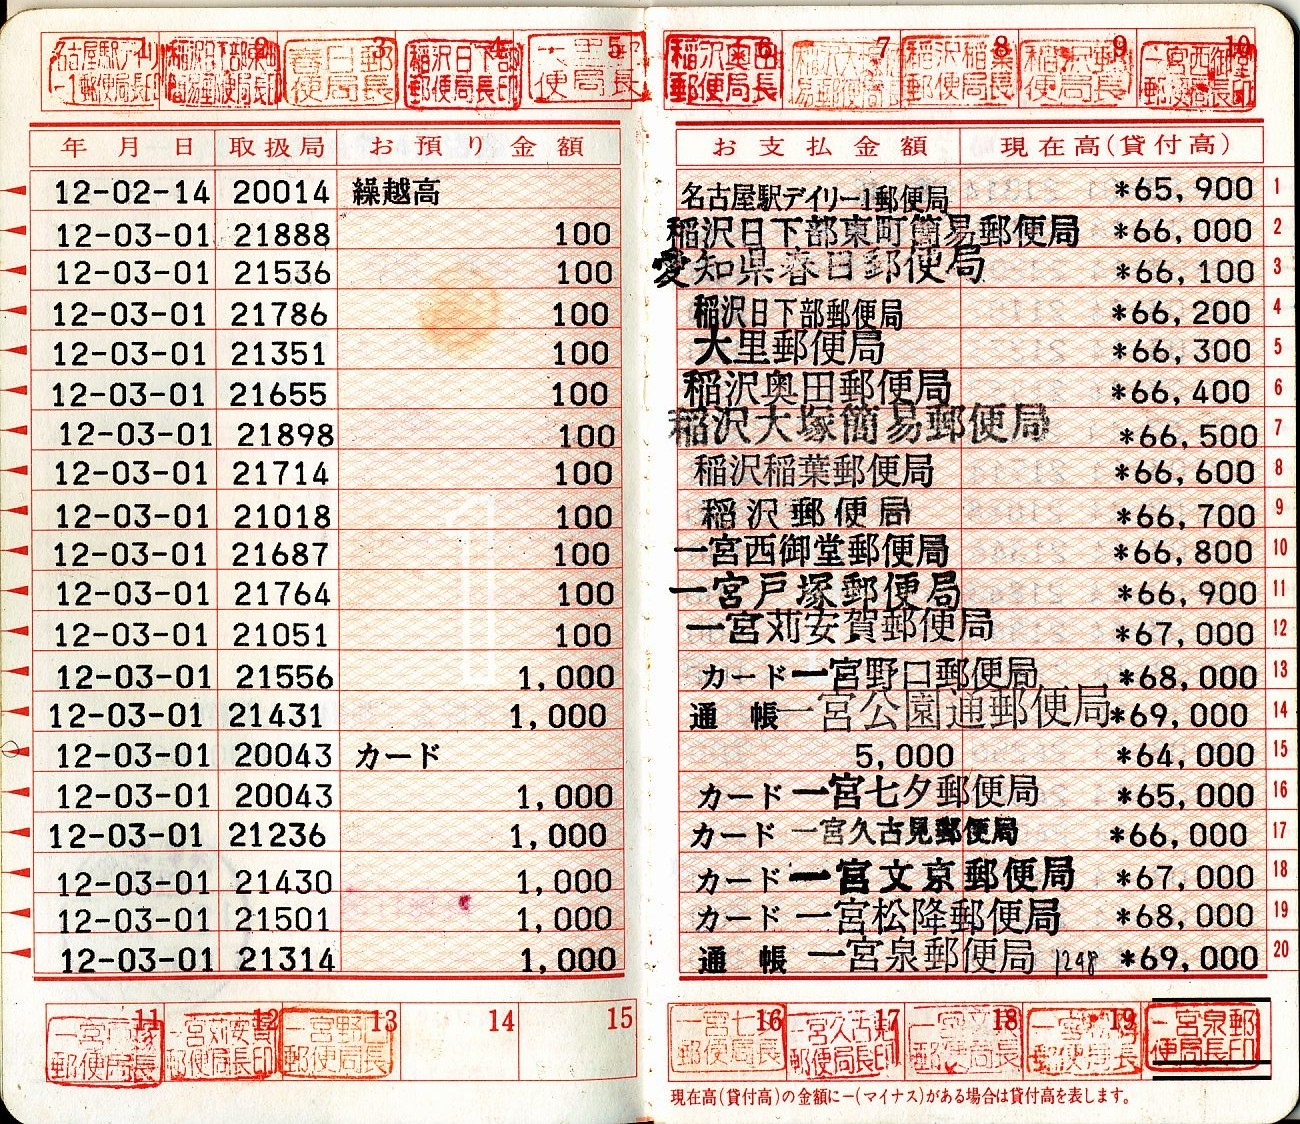 1 2 3 4 5 6 7 8 9 10
年月日 取扱局 お預り金額 お支払金額 現在高(貸付高)
12-02-14 20014 繰越高 名古屋駅デイリー1郵便局 *65,900 1
12-03-01 21888 100 稲沢日下部東町簡易郵便局 *66,000 2
12-03-01 21536 100 愛知県春日郵便局 *66,100 3
12-03-01 21786 100 稲沢日下部郵便局 *66,200 4
12-03-01 21351 100 大里郵便局 *66,300 5
12-03-01 21655 100 稲沢奥田郵便局 *66,400 6
12-03-01 21898 100 稲沢大塚簡易郵便局 *66,500 7
12-03-01 21714 100 稲沢稲葉郵便局 *66,600 8
12-03-01 21018 100 稲沢郵便局 *66,700 9
12-03-01 21687 100 一宮西御堂郵便局 *66,800 10
12-03-01 21764 100 一宮戸塚郵便局 *66,900 11
12-03-01 21051 100 一宮苅安賀郵便局 *67,000 12
12-03-01 21556 1,000 カード 一宮野口郵便局 *68,000 13
12-03-01 21431 1,000 通帳 一宮公園通郵便局 *69,000 14
12-03-01 20043 カード 5,000 *64,000 15
12-03-01 20043 1,000 カード 一宮七夕郵便局 *65,000 16
12-03-01 21236 1,000 カード 一宮久古見郵便局 *66,000 17
12-03-01 21430 1,000 カード 一宮文京郵便局 *67,000 18
12-03-01 21501 1,000 カード 一宮松降郵便局 *68,000 19
12-03-01 21314 1,000 通帳 一宮泉郵便局 1248 *69,000 20
11 12 13 14 15 16 17 18 19
一宮泉郵便局長印
現在高(貸付高)の金額に-(マイナス)がある場合は貸付高を表します。